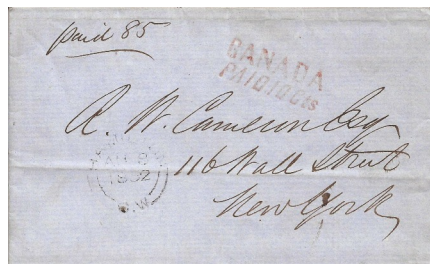 paid 85
CANADA
PAID 10 Cts
R. W. Cameron Esq
116 Wall Street
New York
1862
C.W.